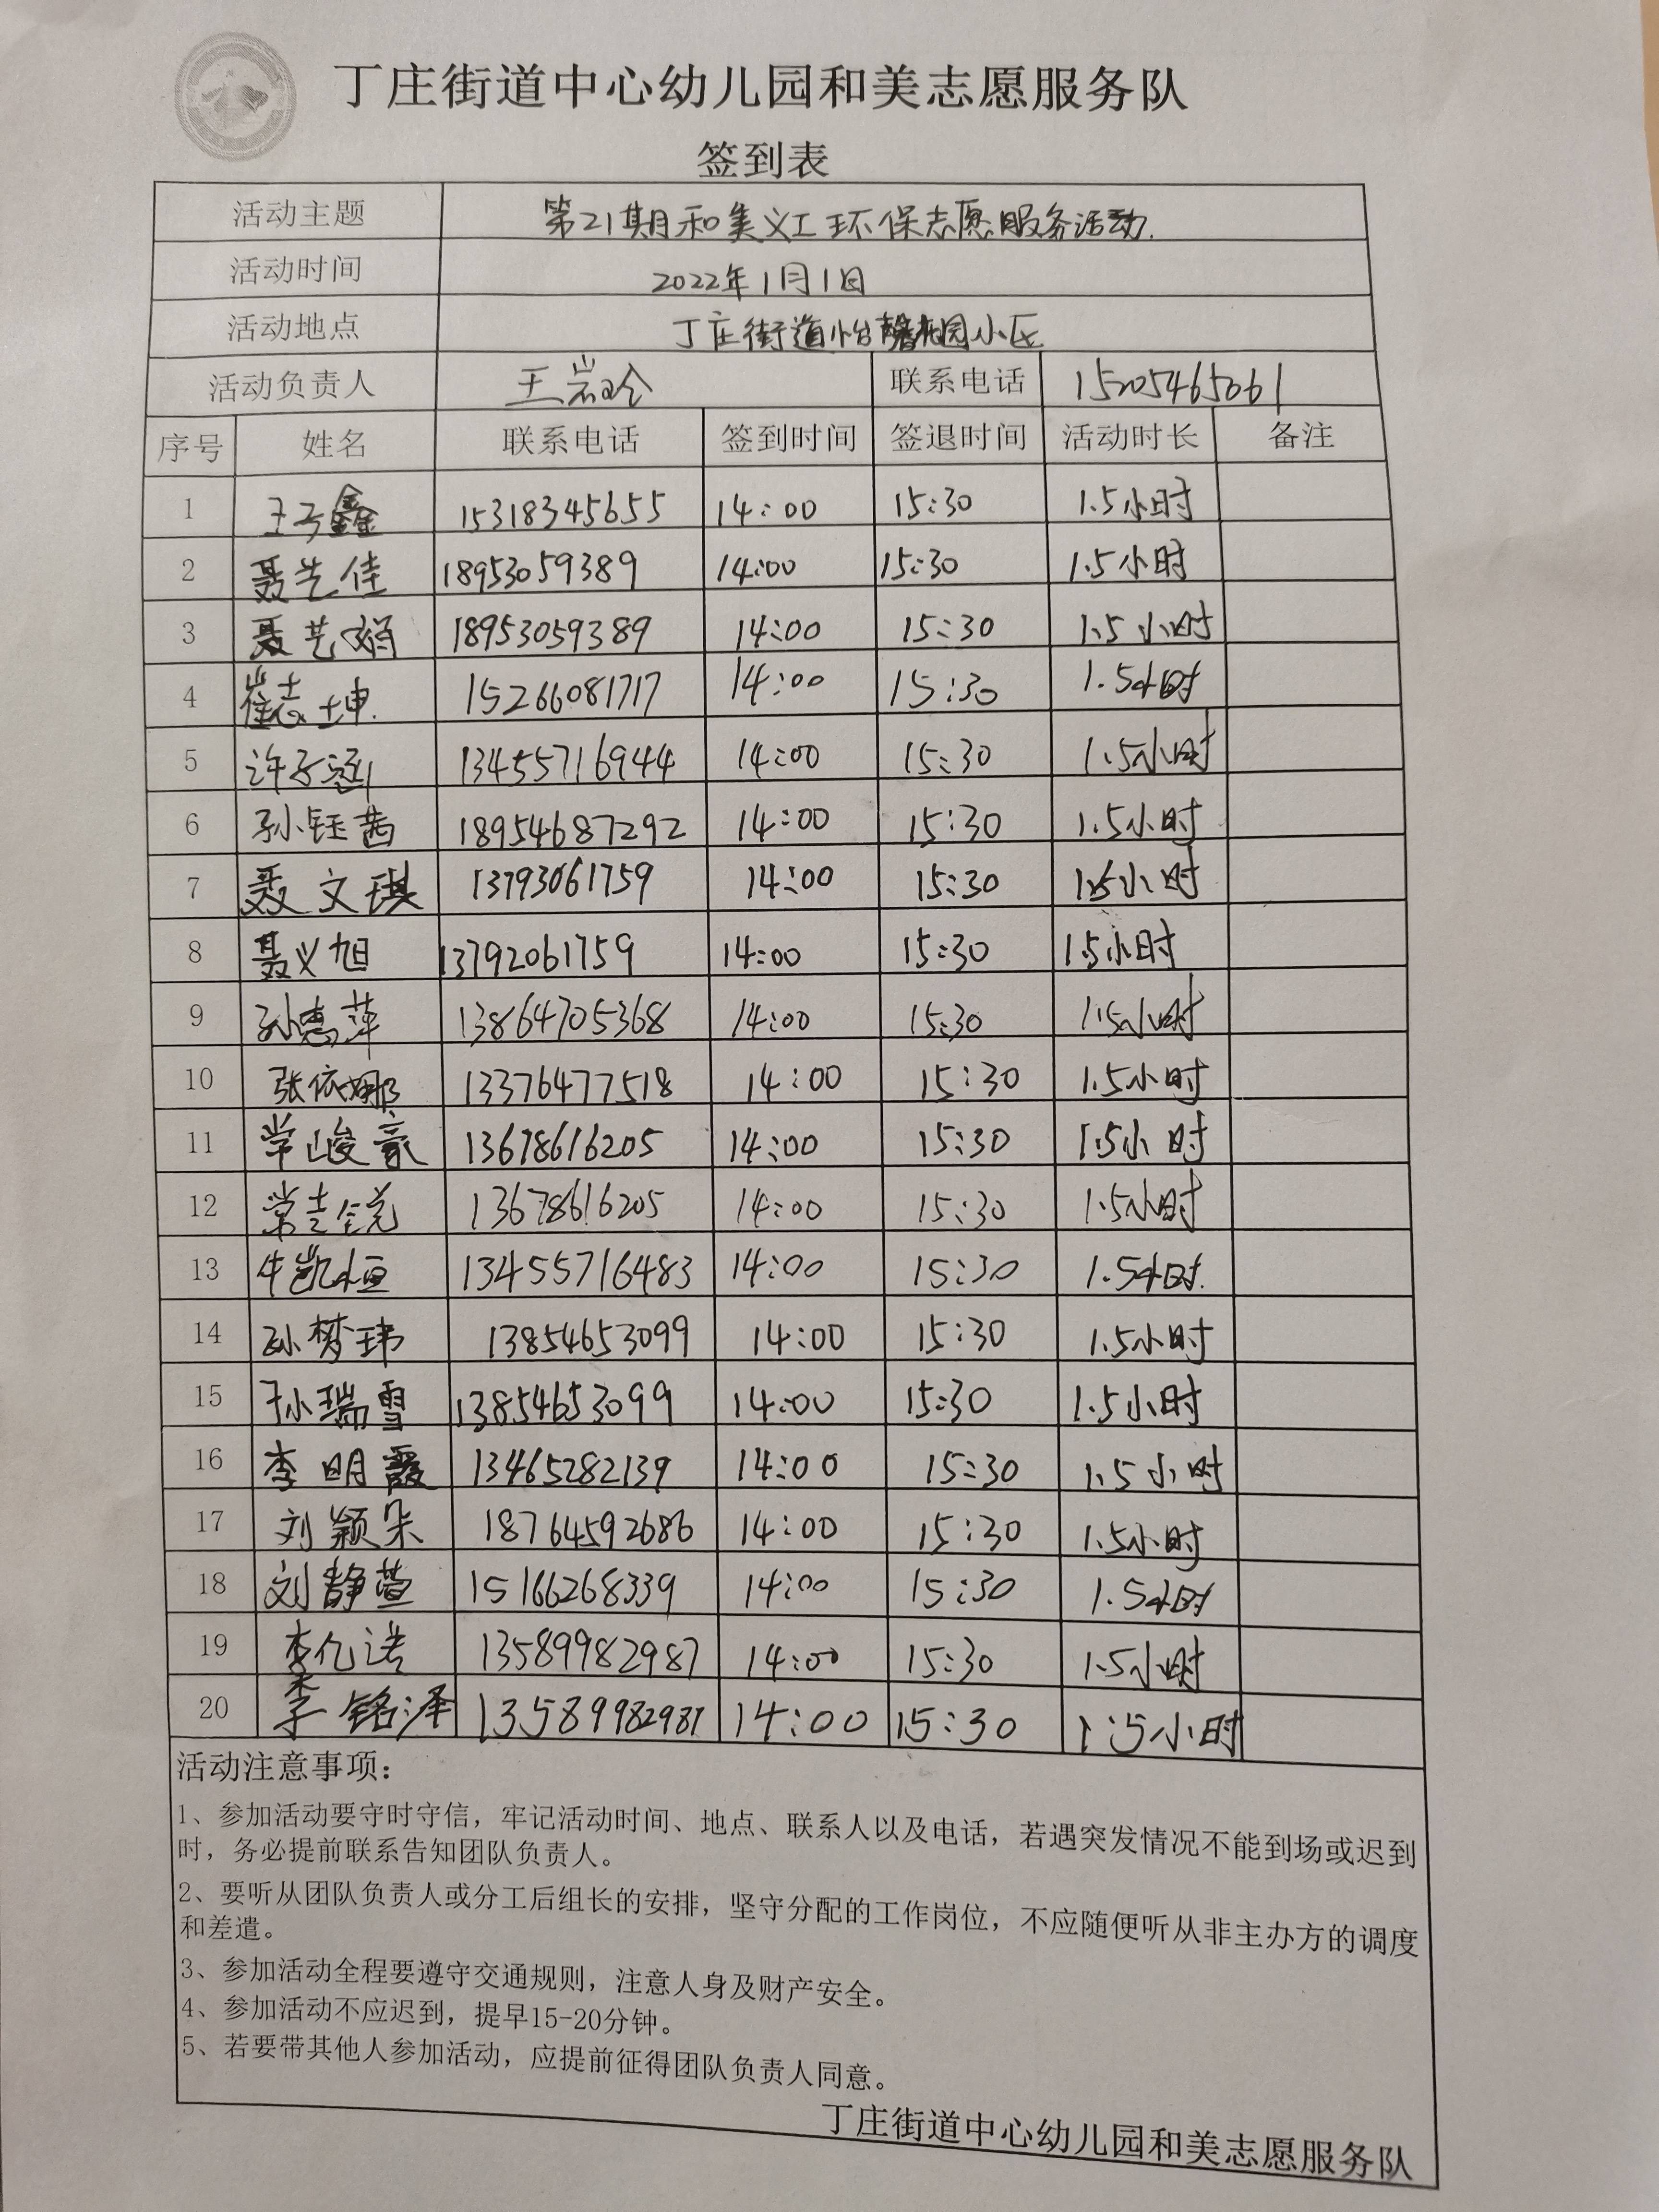 丁庄街道中心幼儿园和美志愿服务队
签到表
活动主题 第21期和美义工环保志愿服务活动.
活动时间 2022年1月1日
活动地点 丁庄街道怡馨花园小区
活动负责人 王岩 联系电话 15205465061
序号 姓名 联系电话 签到时间 签退时间 活动时长 备注
1 王子鑫 15318345655 14:00 15:30 1.5小时
2 聂艺佳 18953059389 14:00 15:30 1.5小时
3 聂艺娟 18953059389 14:00 15:30 1.5小时
4 崔志坤. 15266081717 14:00 15:30 1.5小时
5 许子涵 13455716944 14:00 15:30 1.5小时
6 孙钰茜 18954687292 14:00 15:30 1.5小时
7 聂文琪 13793061759 14:00 15:30 1.5小时
8 聂义旭 13792061759 14:00 15:30 1.5小时
9 孙惠萍 13864705368 14:00 15:30 1.5小时
10 张依娜 13376477518 14:00 15:30 1.5小时
11 常峻豪 13678616205 14:00 15:30 1.5小时
12 常 13678616205 14:00 15:30 1.5小时
13 牛凯恒 13455716483 14:00 15:30 1.5小时.
14 孙梦玮 13854653099 14:00 15:30 1.5小时
15 孙瑞雪 13854653099 14:00 15:30 1.5小时
16 李明霞 13465282139 14:00 15:30 1.5小时
17 刘颖朵 18764592686 14:00 15:30 1.5小时
18 刘静萱 15166268339 14:00 15:30 1.5小时
19 李亿诺 13589982987 14:00 15:30 1.5小时
20 李铭泽 13589982987 14:00 15:30 1.5小时
活动注意事项：
1、参加活动要守时守信，牢记活动时间、地点、联系人以及电话，若遇突发情况不能到场或迟到
时，务必提前联系告知团队负责人。
2、要听从团队负责人或分工后组长的安排，坚守分配的工作岗位，不应随便听从非主办方的调度
和差遣。
3、参加活动全程要遵守交通规则，注意人身及财产安全。
4、参加活动不应迟到，提早15-20分钟。
5、若要带其他人参加活动，应提前征得团队负责人同意。
丁庄街道中心幼儿园和美志愿服务队